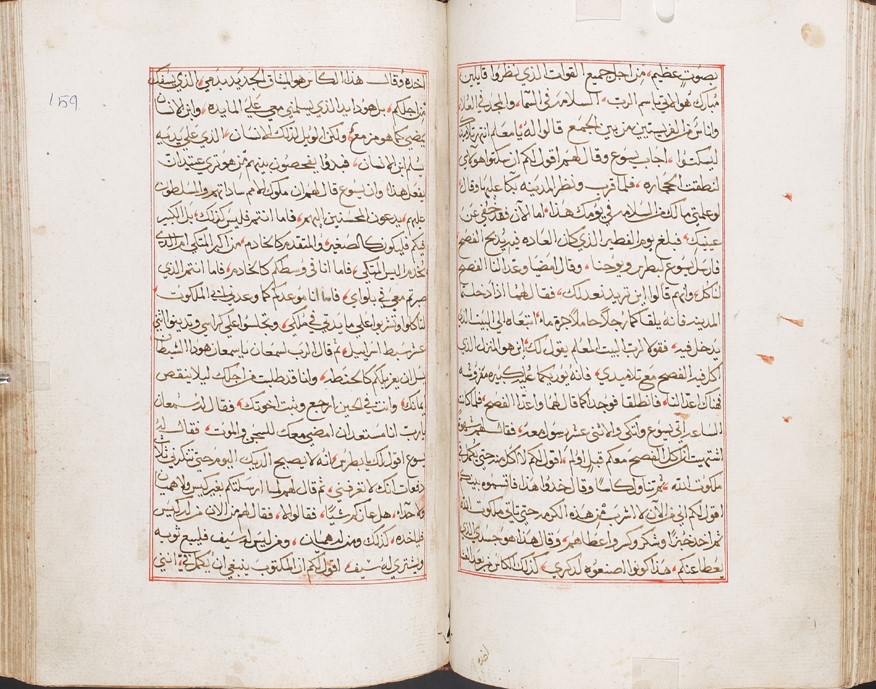 بصوت عظيم، من اجل جميع القوات الذي نظروا قايلين
مبارك هو الملك الاتي باسم الرب، السلام في السما، والمجد في العلا
واناس من الفريسيين من بين الجمع قالوا له يا معلم انتهر تلاميدك
ليسكتوا، اجاب يسوع وقال لهم اقول لكم ان سكتوا هولاي
لنطقت الحجاره، فلما قرب ونظر المدينه بكا عليها وقال
لو علمتي مالك من السلامه في يومك هذا، اما الان فقد خفي عن
عينيك، فبلغ يوم الفطير الذي كان العاده فيه يدبح الفصح
فارسل يسوع بطرس ويوحنا، وقال امضيا وعدا لنا الفصح
لناكل، وانهم قالوا اين تريد نعد لك، فقال لهما اذا دخلتما
المدينه فانه يلقاكما رجل حاملا جرة ماء، اتبعاه الي البيت الذي
يدخل فيه، فقولا لرب البيت المعلم يقول لك، اين هو المنزل الذي
اكل فيه الفصح مع تلاميدي، فانه يوريكما عليه كبيره مفروشه
هناك اعدا لنا، فانطلقا فوجدا كما قال لهما واعدا الفصح، فلما كانت
الساعه اتكي يسوع والاثني عشر رسول معه، فقال لهم شهوة
اشتهيت ان اكل الفصح معكم قبل اولم، اقول لكم لا اكل منه حتي يكمل
ملكوت الله، ثم تناول كاسا وقال خدوا هذا فاقسموه بينكم
اقول لكم اني من الان لا اشرب من هذه الكرمه حتي تاتي ملكوت الله
ثم اخد خبزا وشكر وكسر واعطاهم، وقال هذا هو جسدي الذي
يعطا عنكم، هذا كونوا اصنعوه لدكري، كذلك الكاس من بعد ما
اخده وقال هذا الكاس هو الميثاق الجديد بدمي، الذي يسفك
من اجلكم، بل هودا يد الذي يسلمني معي علي المايده، وابن الانسان
يمضي كما هو مزمع، ولكن الويل لذلك الانسان، الذي علي يديه
يسلم ابن الانسان، فبدوا يفحصون بينهم من هو تري عتيد ان
يفعل هذا، وان يسوع قال لهم ان ملوك الامم ساداتهم والمسلطون
عليهم، يدعون المحسنين اليهم، فاما انتم فليس كذلك، بل الكبير
فيكم فليكون كالصغير، والمتقدم كالخادم، من اكبر المتكي ام الذي
يخدم اليس المتكي، فاما انا في وسطكم كالخادم، فاما انتم الذي
صبرتم معي في بلواي، فاما انا موعدكم كما وعدني ابي الملكوت
لتاكلوا وتشربوا علي مايدتي في ملكي، وتجلسوا علي كراسي وتدينوا اثني
عشر سبط اسراييل، ثم قال الرب لسمعان يا سمعان هودا الشيطان
سال ان يغربلكم كالحنطه، وانا قد طلبت من اجلك ليلا ينقص
ايمانك، وانت في الحين ارجع وثبت اخوتك، فقال له سمعان
يا رب انا مستعد ان امضي معك للسجن والموت، فقال له
يسوع اقول لك يا بطرس، انه لا يصيح الديك اليوم حتي تنكرني ثلاث
دفعات انك لا تعرفني، ثم قال لهم لما ارسلتكم بغير كيس ولا هميان
ولا حدا، هل عازكم شيا، فقالوا لا، فقال لهم من الان من له كيس
فلياخده، كذلك ومن له هميان، ومن ليس له سيف، فليبيع ثوبه
ويشتري له سيف، اقول لكم ان المكتوب ينبغي ان يكمل في، انني
159